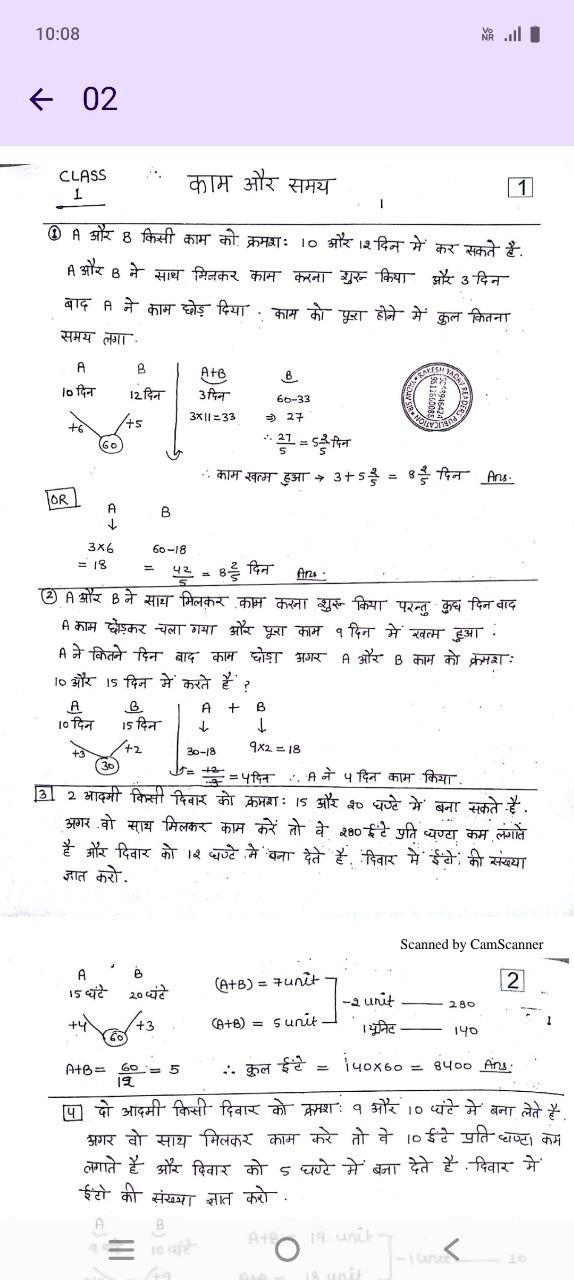 10:08
Vo NR
← 02
CLASS 1
∴ काम और समय
1
① A और B किसी काम को क्रमशः 10 और 12 दिन में कर सकते है.
A और B ने साथ मिलकर काम करना शुरू किया और 3 दिन
बाद A ने काम छोड़ दिया. काम को पूरा होने में कुल कितना
समय लगा.
A B A+B B
10 दिन 12 दिन 3 दिन 60-33
+6 +5 3x11=33 ⇒ 27
60 ∴ 27/5 = 5 2/5 दिन
∴ काम खत्म हुआ → 3 + 5 2/5 = 8 2/5 दिन Ans.
RAKESH YADAV READERS PUBLICATION
OR
A B
↓
3x6 60-18
= 18 = 42/5 = 8 2/5 दिन Ans.
② A और B ने साथ मिलकर काम करना शुरू किया परन्तु कुछ दिन बाद
A काम छोड़कर चला गया और पूरा काम 9 दिन में खत्म हुआ.
A ने कितने दिन बाद काम छोड़ा अगर A और B काम को क्रमशः
10 और 15 दिन में करते हैं?
A B A + B
10 दिन 15 दिन ↓ ↓
+3 +2 30-18 9x2=18
30 = 12/3 = 4 दिन ∴ A ने 4 दिन काम किया.
3 2 आदमी किसी दिवार को क्रमशः 15 और 20 घण्टे में बना सकते है.
अगर वो साथ मिलकर काम करें तो वे 280 ईंटे प्रति घण्टा कम लगाते
है और दिवार को 12 घण्टे में बना देते है. दिवार में ईंटों की संख्या
ज्ञात करो.
Scanned by CamScanner
2
A B (A+B) = 7 unit
15 घंटे 20 घंटे -2 unit — 280
+4 +3 (A+B) = 5 unit 1 युनिट — 140
60
A+B = 60/12 = 5 ∴ कुल ईंटे = 140x60 = 8400 Ans.
4 दो आदमी किसी दिवार को क्रमशः 9 और 10 घंटे में बना लेते है.
अगर वो साथ मिलकर काम करे तो वे 10 ईंटे प्रति घण्टा कम
लगाते है और दिवार को 5 घण्टे में बना देते है. दिवार में
ईंटो की संख्या ज्ञात करो.
A B A+B = 19 unit
10 घंटे -1 unit — 10
+9 A+B = 18 unit